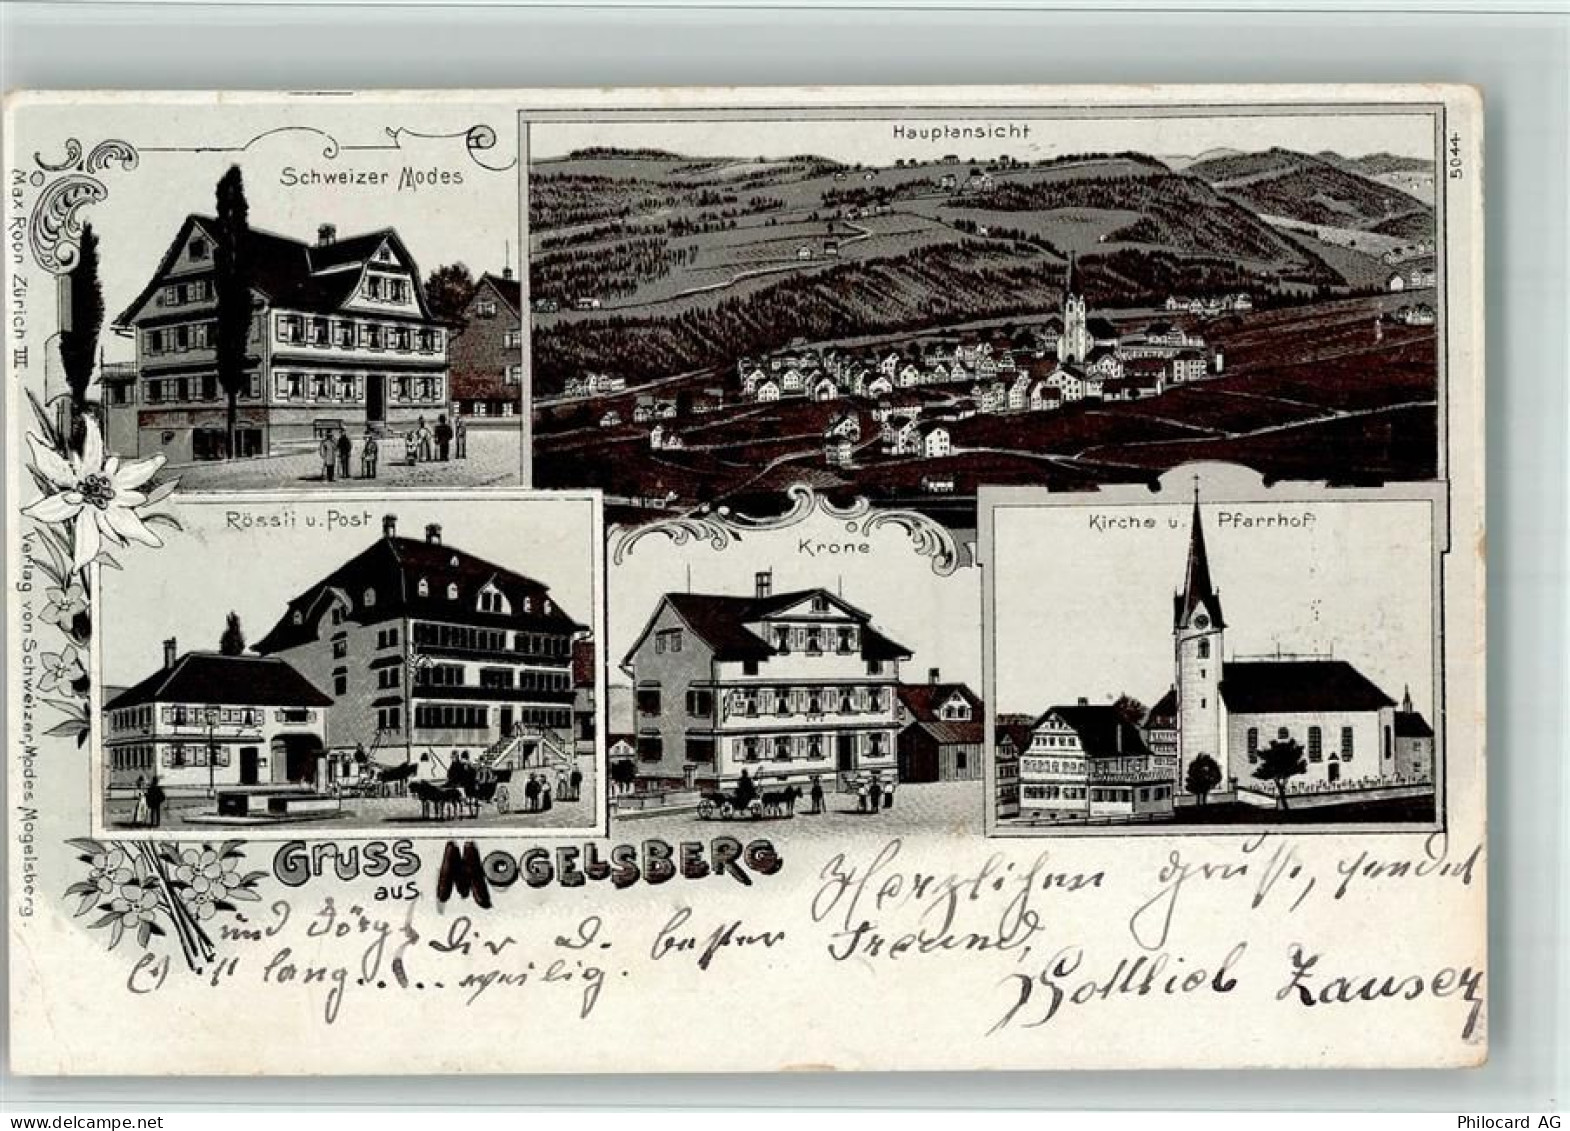 Hauptansicht
5044
Schweizer Modes
Max Roon Zürich III.
Rössli u. Post
Krone
Kirche u. Pfarrhof
Verlag von Schweizer, Modes Mogelsberg
Gruss
aus Mogelsberg
Herzlichen Gruss, sendet
und Dir d. bester Freund,
lang..... weilig.
Gottlieb Zauser
delcampe.net
Philocard AG